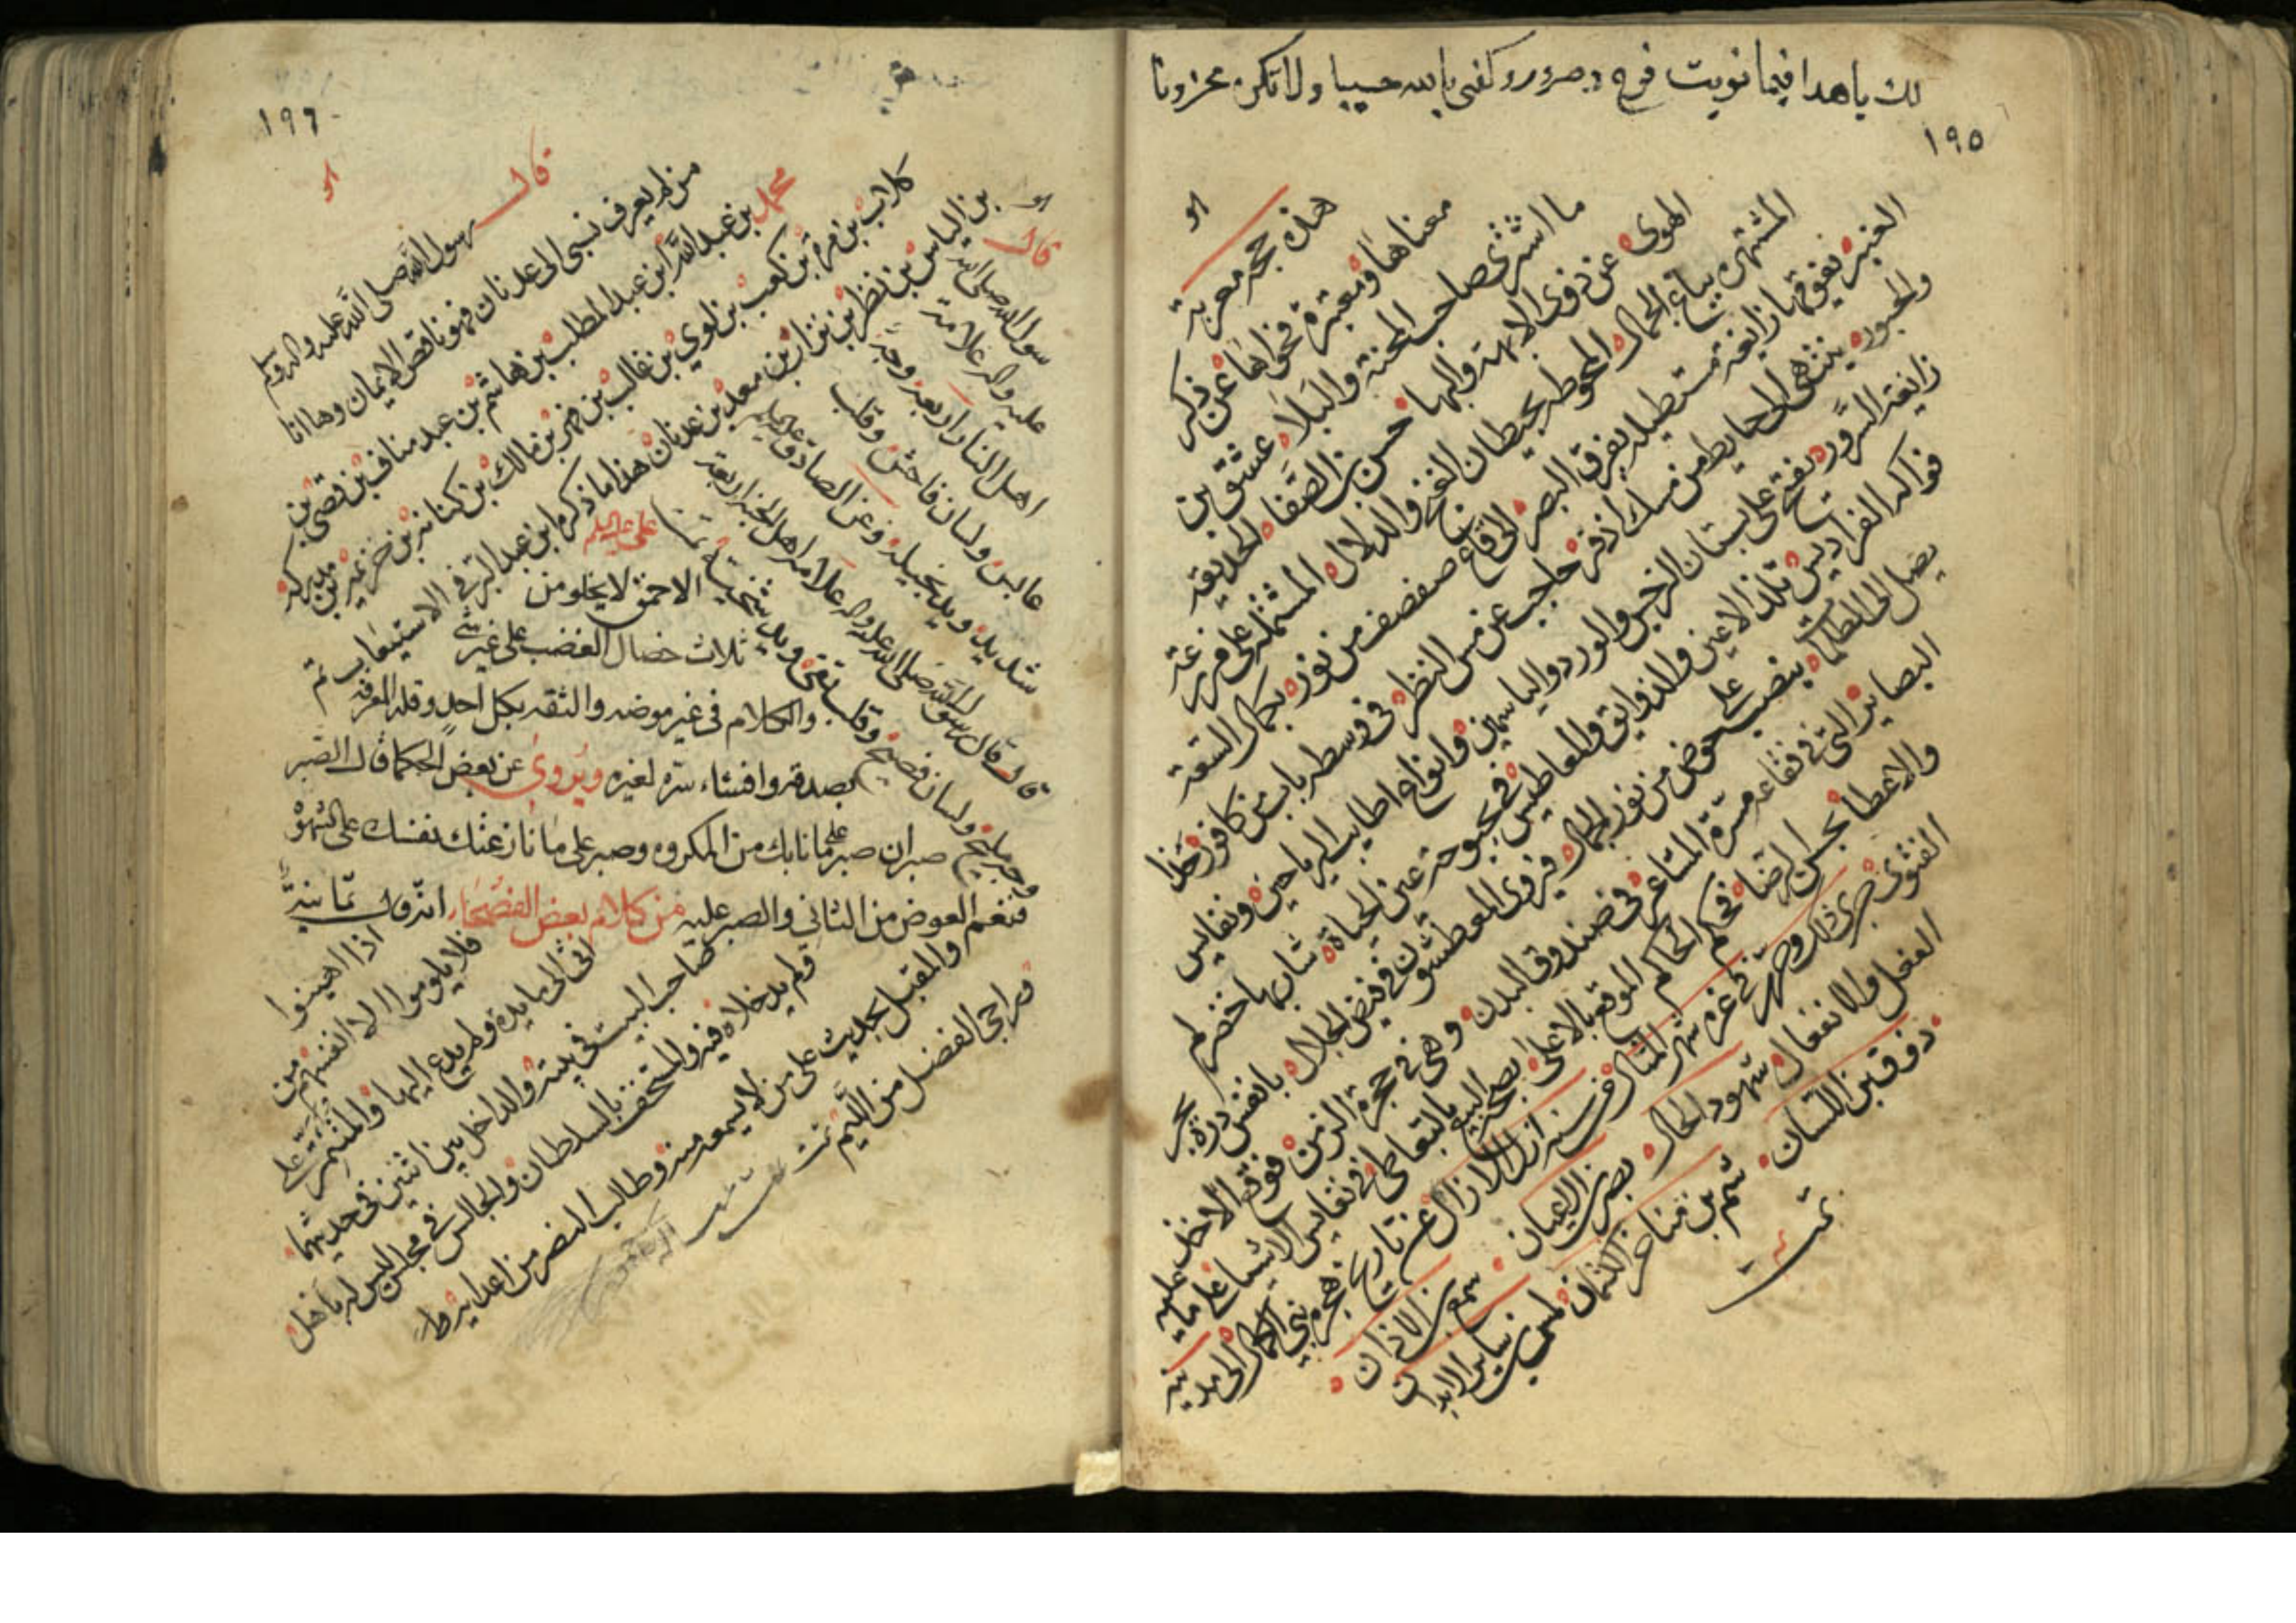 لك يا هذا فيما نويت فرح وسرور وكفى بالله حسيبا ولا تكن محزونا
١٩٥
هو
هذه حجة معربة
معناها ومعتبرة فحواها عن ذكر
ما اشترى صاحب المحنة والبلاء عشق بن
الهوى عن ذوى الابهة والبها حسن بن الصفا الحديقة
المشتهرة بباغ الجمال المحوطة بحيطان الغنج والدلال المشتملة على فرزعة
العنبر نفيق بها زايغة مستطيلة بفرق البصر الى قاع صفصف من نور بجمال السعة
والحبور ينتهى الى حايط من مسك اذفر حاجب عن مس النظر في وسطه باب من كافور حذا
زايغة السرور يفتح على بستان النرجس والورد والياسمين وانواع اطايب الرياحين ونفايس
فواكه الفراديس تلذ الاعين والذوايق والمعاطيس في بحبوحته عين الحياة شاربها خضر لم
يصل الى الظلمات ينصب على حوض من نور الجمال فيروى المعطشون في فيض الجلال بانفس درة بحر
البصاير التى في نقاعه مسرة المتاع في صندوق البدن وهى في حجرة الزمن فوقه الاوخات عليه
والاعطا بحسن الرضا في حكم الحاكم الموقع بالاعلى بصحة البيع بالتعاطى في نفايس الاشيا على ما
الفتوى جرى ذلك وحرر في غرة شهر المثال من سنة ازل الازال عن تاريخ هجرة نبى الكمال الى مدينة
الفعل والانفعال شهود الحال بصر بن العيان سمع بن الاذان
ذوق بن اللسان شم بن مناخر الانسان لمس بن ساير الابدان
تمت
١٩٦
هو
قال رسول الله صلى الله عليه واله وسلم
من لم يعرف نسبى الى عدنان فهو ناقص الايمان وها انا
محمد بن عبد الله ابن عبد المطلب بن هاشم بن عبد مناف بن قصى بن
كلاب بن مرة بن كعب بن لوي بن غالب بن فهر بن مالك بن كنانة بن خزيمة بن مدركة
بن الياس بن نظر بن نزار بن معد بن عدنان هذا ما ذكره ابن عبد البر في الاستيعاب تم
هو
قال رسول الله صلى الله
عليه واله علامة
اهل النار اربعة وجه
عابس ولسان فاحش وقلب
شديد ويد بخيلة وعن الصادق عليه السلم
قال قال رسول الله صلى الله عليه واله علامة اهل الجنة اربعة
وجه مليح ولسان فصيح وقلب تقى ويد سخية تم
على عليه السلم
الاحمق لا يخلو من
ثلاث خصال الغضب على غير شئ
والكلام في غير موضعه والثقة بكل احد وقلة المعرفة
بصدقه وافشاء سره لغيره ويروى عن بعض الحكما قال الصبر
صبران صبر على ما نابك من المكروه وصبر على ما نازعتك نفسك على الشهوة
فنعم العوض من الثانى والصبر عليه من كلام بعض الفصحاء انه قال ثمانية
اذا اهينوا
فلا يلوموا الا انفسهم من
اتى الى مايدة ولم يدع اليها والمتأمر على
صاحب البيت في بيته والداخل بين اثنين في حديثهما
ولم يدخلاه فيه والمستخف بالسلطان والجالس في مجلس ليس له باهل
والمقبل بحديث على من لا يسمعه منه وطالب النصر من اعدايه وط
وراجى الفضل من اللئيم تمت